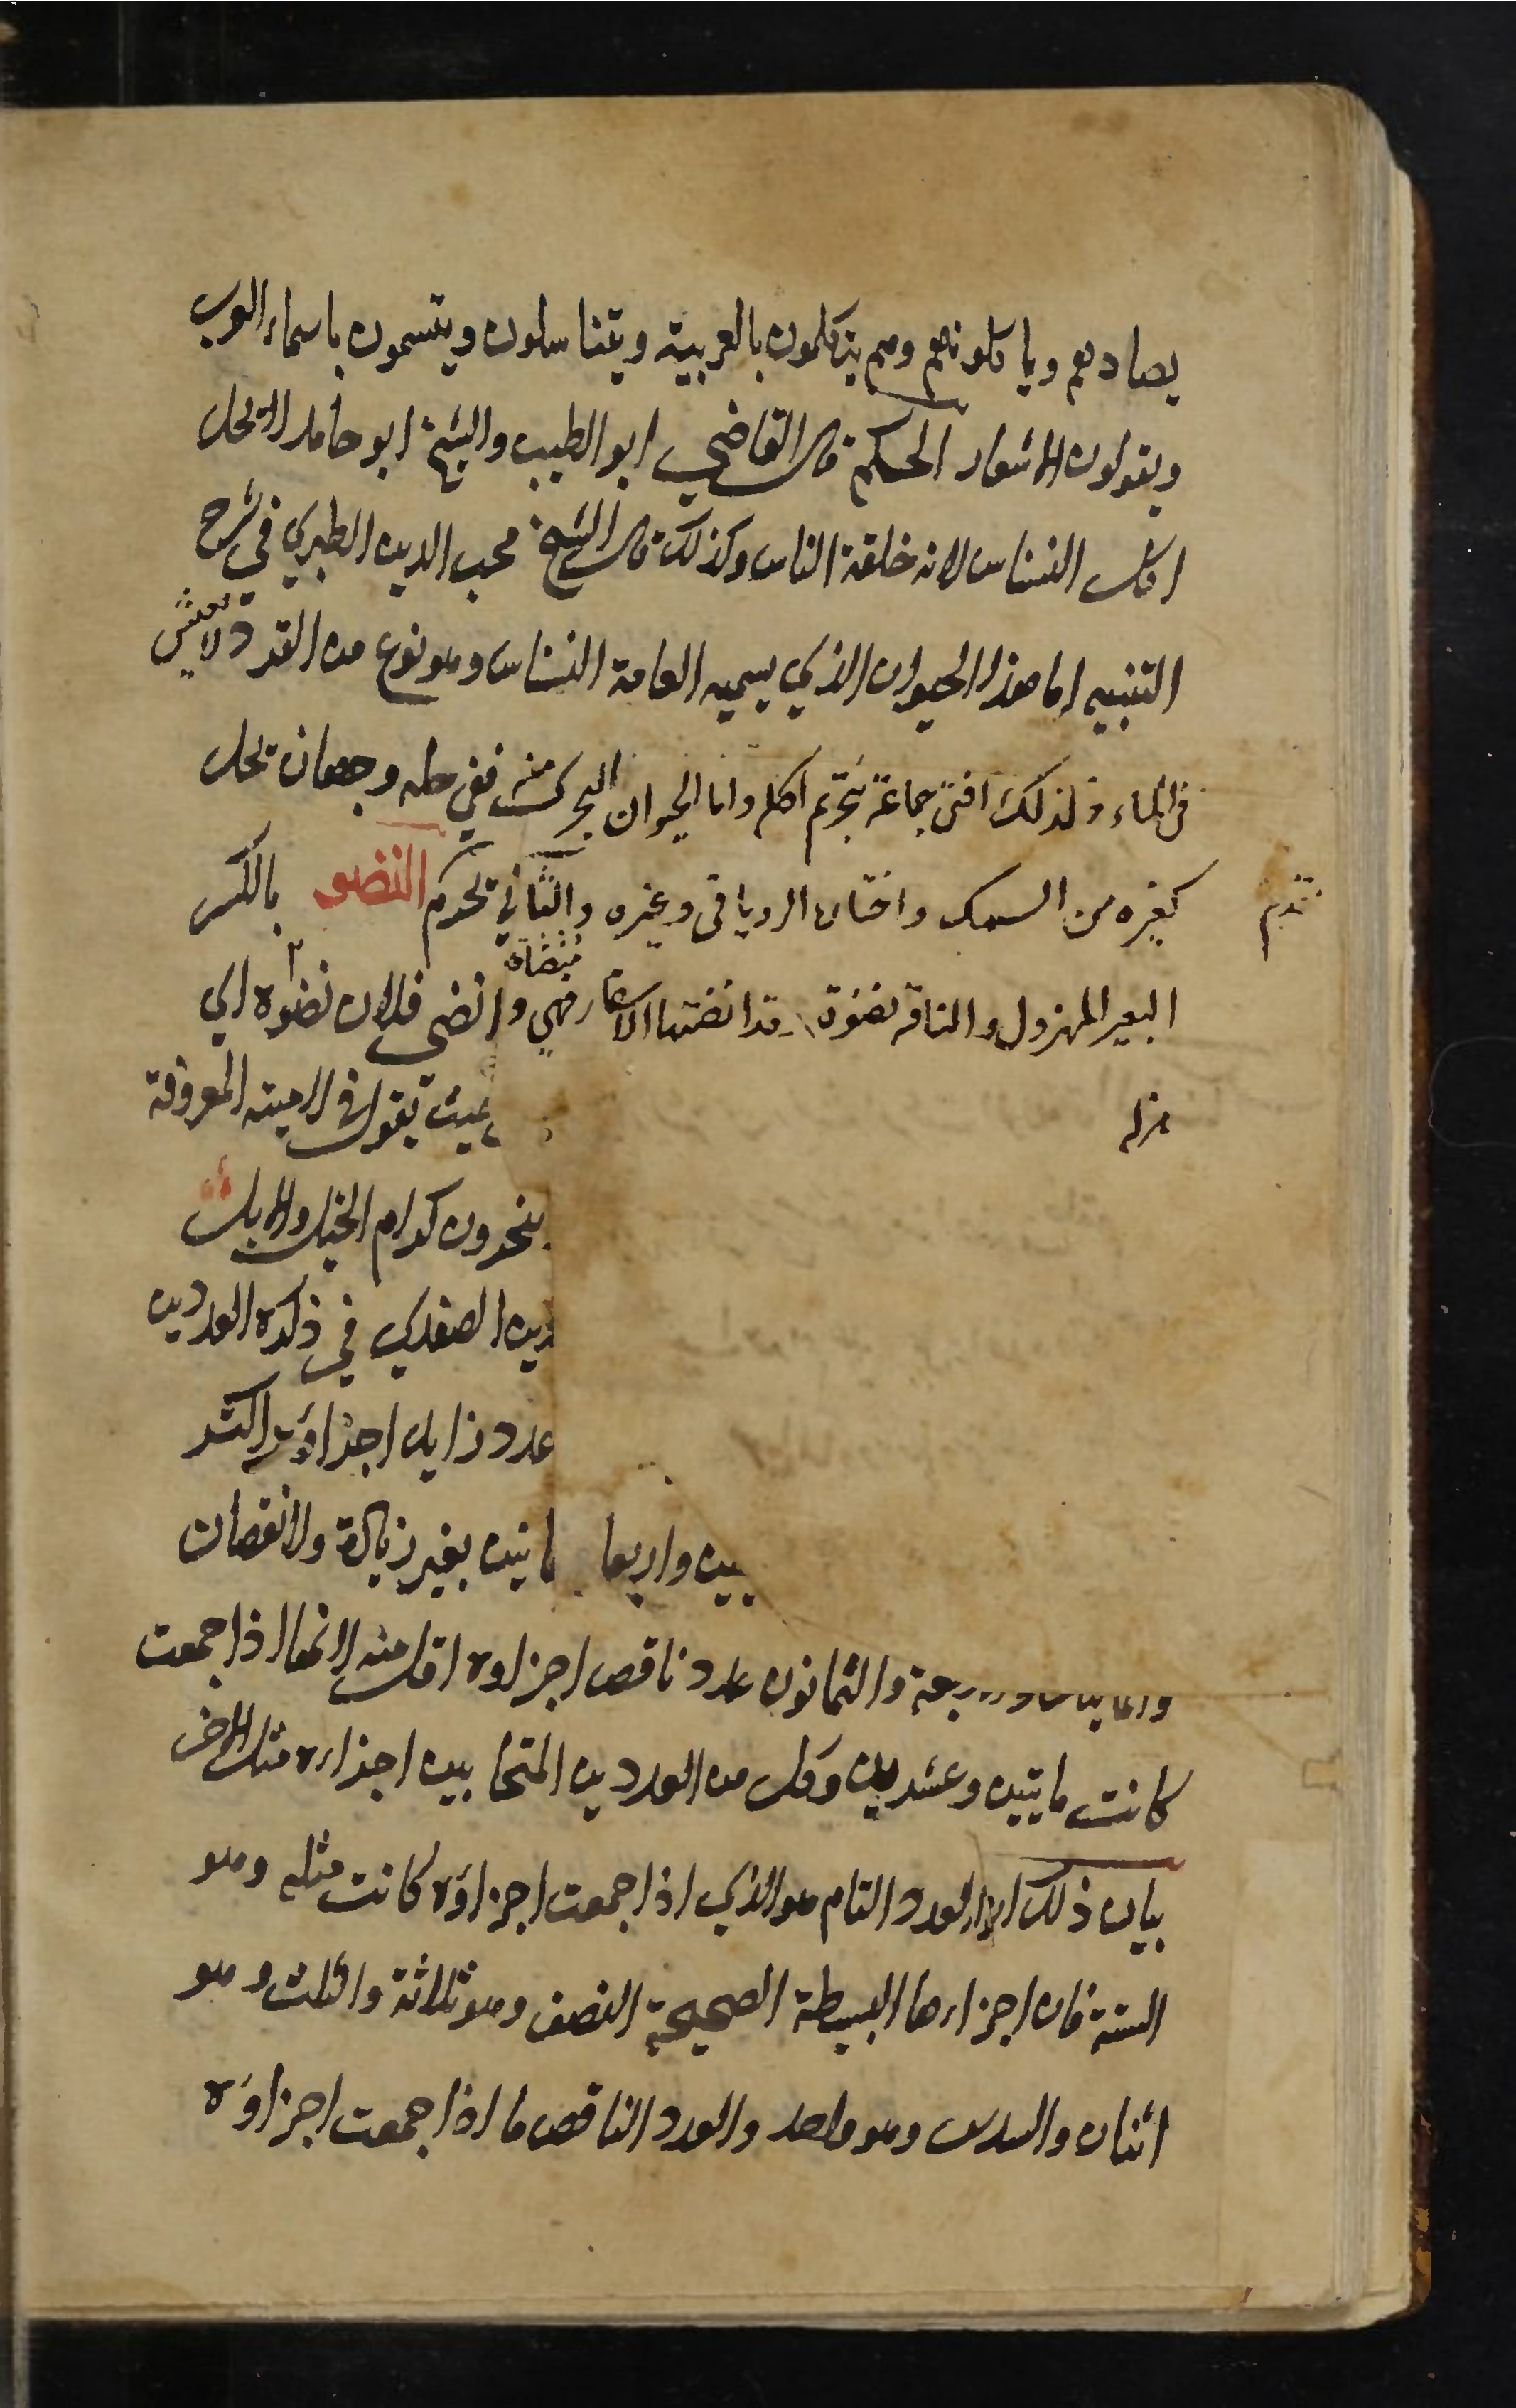 يصادهم وياكلونهم وهم يتكلمون بالعربية ويتناسلون ويتسمون باسماء العرب
ويقولون الاشعار الحكم قال القاضي ابو الطيب والشيخ ابو حامد لا تحل
اكل النسناس لانه خلقة الناس وكذلك قال الشيخ محب الدين الطبري في شرح
التنبيه اما هذا الحيوان الذي يسميه العامة النسناس وهو نوع من القردة لا يعيش
في الماء ولذلك افتى جماعة بتحريم اكله واما الحيوان البحري منه ففي حله وجهان تحل
كغيره من السمك واختاره الروياني وغيره والثاني تحرم النضو بالكسر
البعير المهزول والناقة نضوة قد انضتها الاسفار فهي منضاة وانضى فلان نضوه اي
هزله
يقول في لاميته المعروفة
ينحرون كرام الخيل والابل
دين الصفدي في ذكره العددين
عدد زايد اجزاؤه اكثر
بين واربعا مانين بغير زيادة ولا نقصان
والمايتان والاربعة والثمانون عدد ناقص اجزاوه اقل منه لانها اذا جمعت
كانت مايتين وعشرين وكل من العددين المتحابين اجزاءه مثل الاخر
بيان ذلك ان العدد التام هو الذي اذا جمعت اجزاؤه كانت مثله وهو
الستة فان اجزاءها البسيطة الصحيحة النصف وهو ثلاثة والثلث وهو
اثنان والسدس وهو واحد والعدد الناقص ما اذا جمعت اجزاؤه